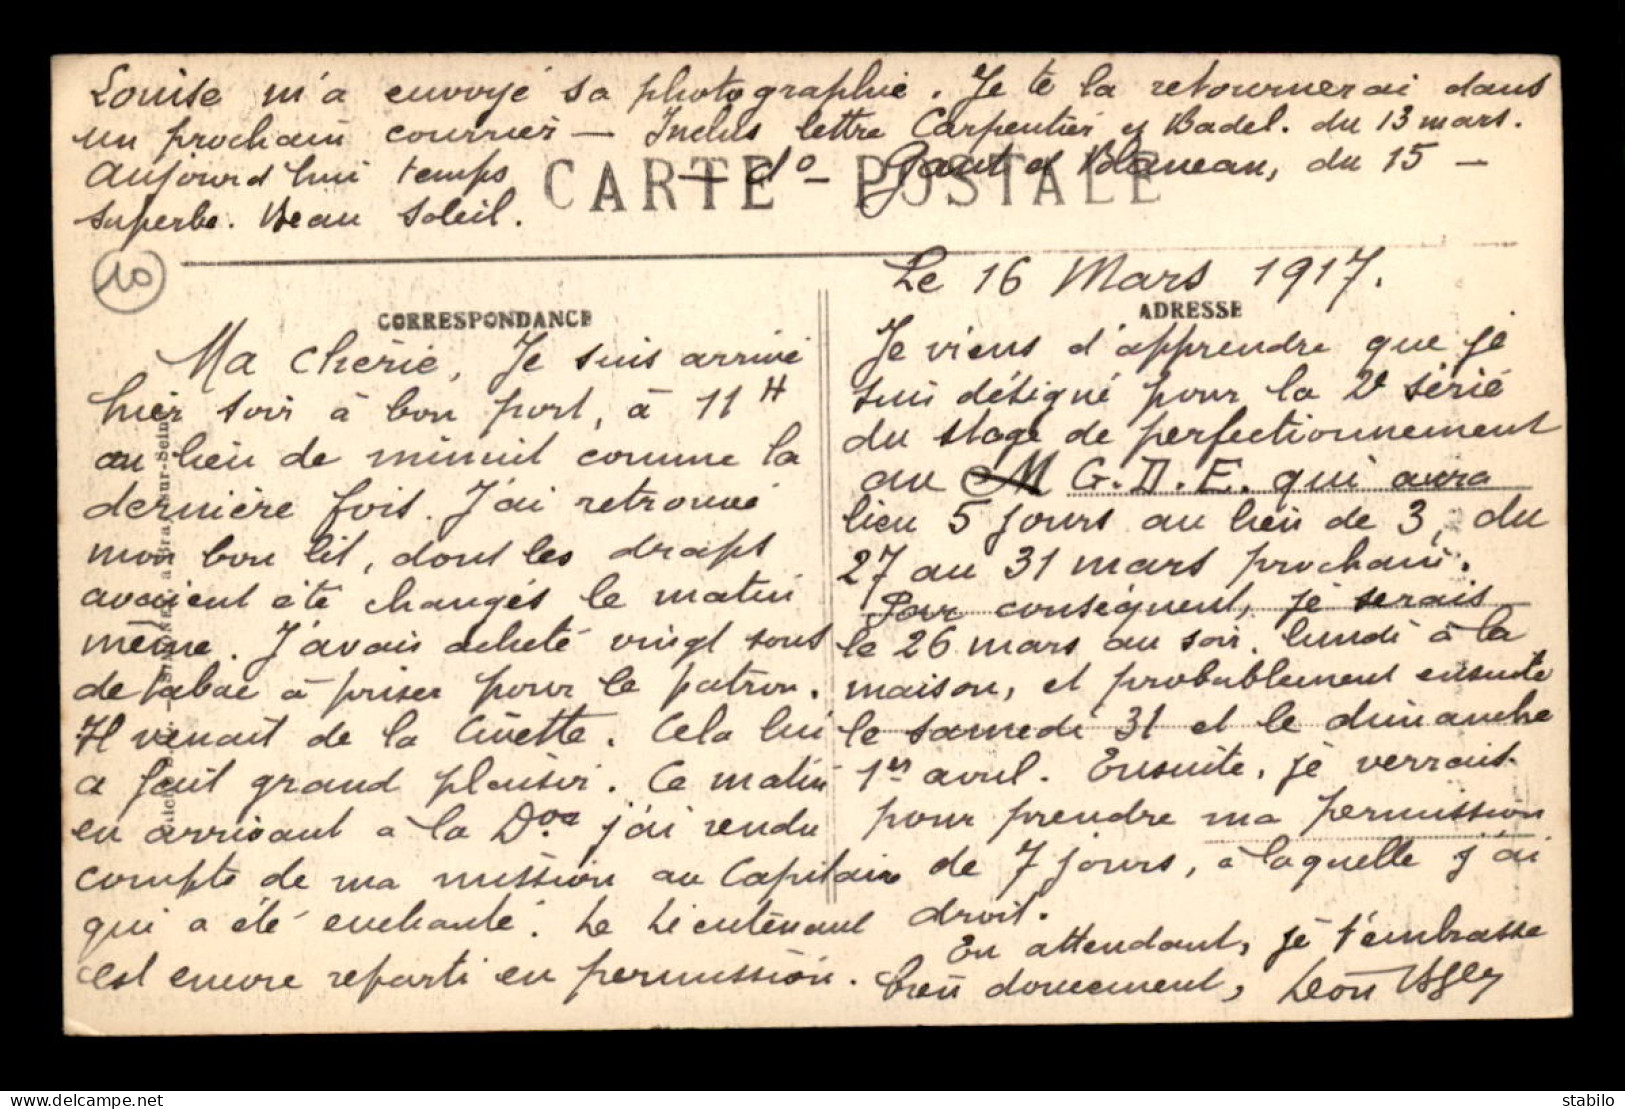 Louise m'a envoyé sa photographie. Je te la retournerai dans
un prochain courrier — Inclus lettre Carpentier et Badel. du 13 mars.
— d° — Gaut et Blaneau, du 15 —
Aujourd'hui temps
superbe. Beau soleil.
CARTE POSTALE
10
CORRESPONDANCE
Ma Chérie, Je suis arrivé
hier soir à bon port, à 11 H
au lieu de minuit comme la
dernière fois. J'ai retrouvé
mon bon lit, dont les draps
avaient été changés le matin
même. J'avais acheté vingt sous
de tabac à priser pour le patron.
Il venait de la Civette. Cela lui
a fait grand plaisir. Ce matin
en arrivant à la Don j'ai rendu
compte de ma mission au Capitaine
qui a été enchanté. Le Lieutenant
est encore reparti en permission.
Le 16 Mars 1917.
ADRESSE
Je viens d'apprendre que je
suis désigné pour la 2e série
du stage de perfectionnement
au G.D.E. qui aura
lieu 5 jours au lieu de 3, du
27 au 31 mars prochain.
Par conséquent, je serais
le 26 mars au soir, lundi à la
maison, et probablement ensuite
le samedi 31 et le dimanche
1er avril. Ensuite, je verrais
pour prendre ma permission
de 7 jours, à laquelle j'ai
droit.
En attendant, je t'embrasse
bien doucement, Léon
sur-Seine